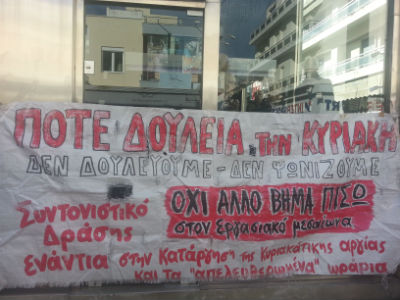 ΠΟΤΕ ΔΟΥΛΕΙΑ την ΚΥΡΙΑΚΗ
ΔΕΝ ΔΟΥΛΕΥΟΥΜΕ - ΔΕΝ ΨΩΝΙΖΟΥΜΕ
ΟΧΙ ΑΛΛΟ ΒΗΜΑ ΠΙΣΩ
στον εργασιακό μεσαίωνα
Συντονιστικό
Δράσης
ενάντια στην κατάργηση της κυριακάτικης αργίας
και τα "απελευθερωμένα" ωράρια